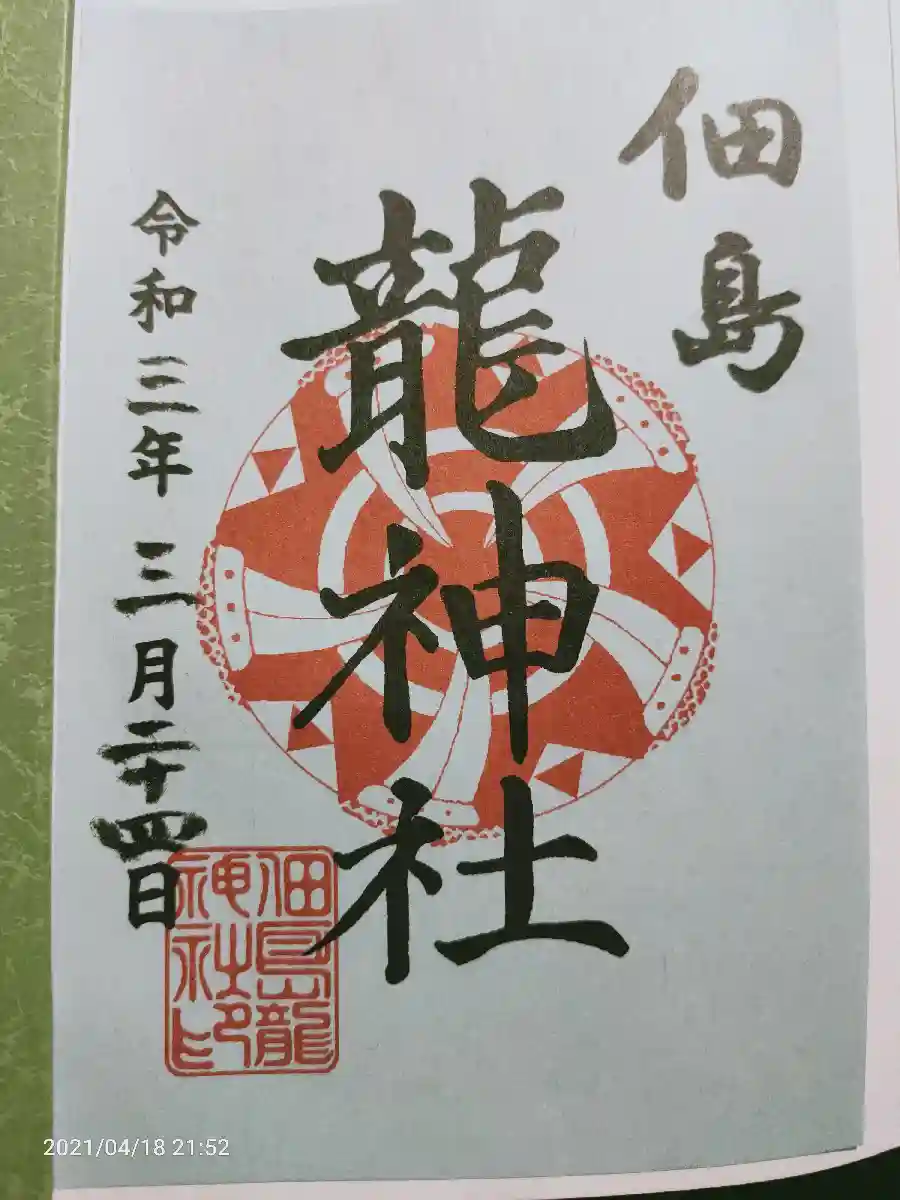 佃島
龍神社
令和三年三月二十四日
佃島龍
神社印
2021/04/18 21:52